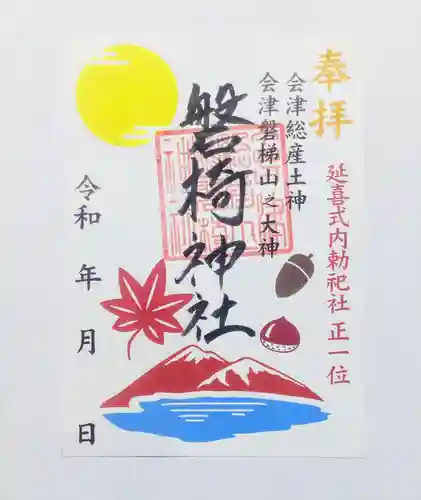 奉拝
延喜式内勅祀社 正一位
会津総産土神
会津磐梯山之大神
磐椅神社
令和 年 月 日